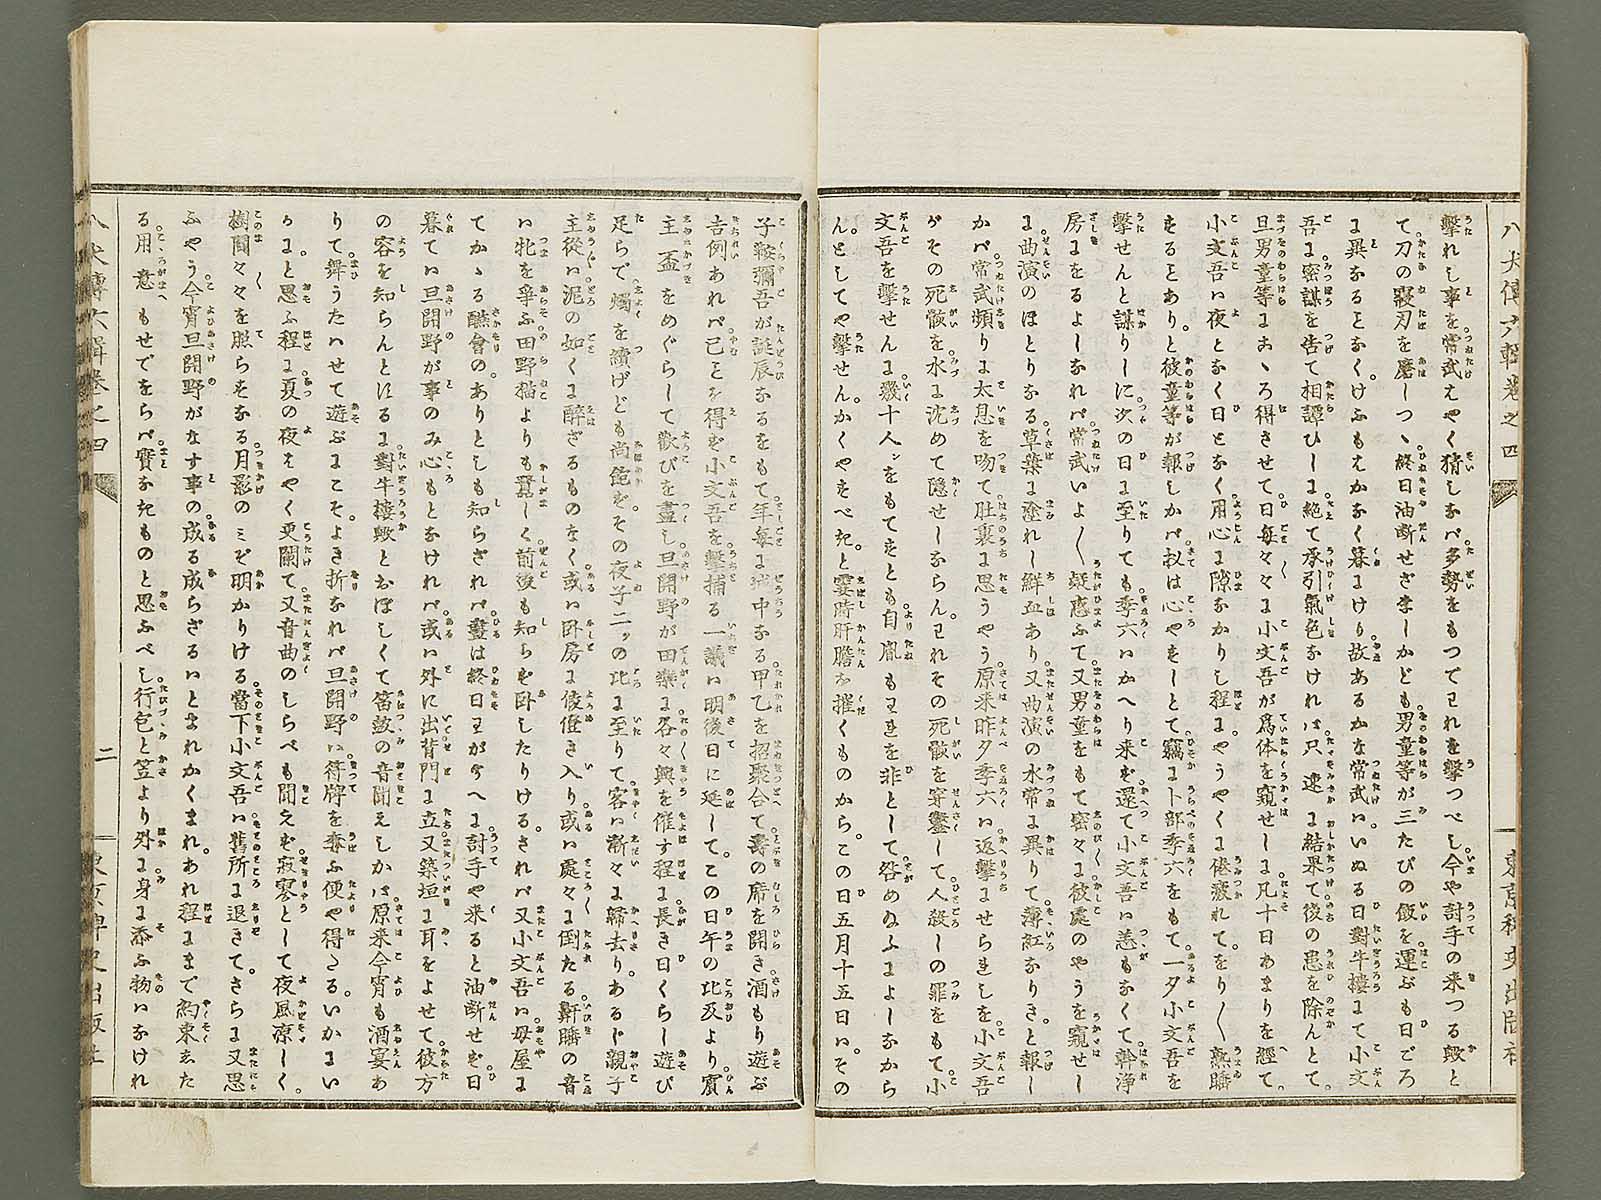 八犬傳六輯卷之四
擊れし事を常武えやく猜しなバ多勢をもつてわれを擊つべし今や討手の来つる歟と
て刀の寢刃を磨しつゝ終日油断せざりしかども男童等が三たびの飯を運ぶも日ごろ
に異なることなくけふもはかなく暮にけり故あるかな常武ハいぬる日對牛樓にて小文
吾に密謀を告て相譚ひしに絶て承引氣色なけれバ只速に結果て後の患を除んとて
旦男童等にこゝろ得させて日毎々々に小文吾が爲体を窺せしに凡十日あまりを經て
小文吾ハ夜となく日となく用心に隙なかりし程にやうやくに倦疲れてをり〳〵熟睡
をることありと彼童等が報しかバ扨は心やすしとて竊に卜部季六をもて一夕小文吾を
擊せんと謀りしに次の日に至りても季六ハかへり来ず還て小文吾ハ恙もなくて幹淨
房にをるよしなれバ常武いよ〳〵疑惑ふて又男童をもて密々に彼處のやうを窺せし
に曲演のほとりなる草葉に塗れし鮮血あり又曲演の水常に異りて薄紅なりきと報し
かバ常武頻りに太息を吻て肚裏に思うやう原来昨夕季六ハ返擊にせられしを小文吾
がその死骸を水に沈めて隠せしならんわれその死骸を穿鑿して人殺しの罪をもて小
文吾を擊せんに幾十人ンをもてすとも自胤もわれを非として咎め給ふによしなから
んとしてや擊せんかくやすべきと霎時肝膽を摧くものからこの日五月十五日ハその
東京稗史出版社
子鞍彌吾が誕辰なるをもて年毎に城中なる甲乙を招聚合て壽の席を開き酒もり遊ぶ
吉例あれバ已ことを得ず小文吾を擊捕る一議ハ明後日に延してこの日午の比及より賓
主盃をめぐらして歡びを盡し旦開野が田樂に各々興を催す程に長き日くらし遊び
足らで燭を續げども尚飽ずその夜子二ッの比に至りて客ハ漸々に歸去りあるじ親子
主從ハ泥の如くに醉ざるものなく或ハ臥房に倰僜き入り或ハ處々に倒たる鼾睡の音
ハ牝を爭ふ田野猫よりも囂しく前後も知らず臥したりけるされバ又小文吾ハ母屋に
てかゝる醼會のありとしも知らざれバ晝は終日わが方へ討手や来ると油断せず日
暮てハ旦開野が事のみ心もとなけれバ或ハ外に出背門に立又築垣に耳をよせて彼方
の容を知らんとほるに對牛樓歟とおぼしくて笛皷の音聞えしかバ原来今宵も酒宴あ
りて舞うたハせて遊ぶにこそよき折なれバ旦開野ハ符牌を奪ふ便や得たるいかにい
かにと思ふ程に夏の夜はやく更闌て又音曲のしらべも聞えず寂寥として夜風凉しく
樹間々々を照らすなる月影のミぞ明かりける當下小文吾ハ舊所に退きてさらに又思
ふやう今宵旦開野がなす事の成る成らざるハとまれかくまれあれ程にまで約束した
る用意もせでをらバ實なきものと思ふべし行包と笠より外に身に添ふ物ハなけれ
八犬傳六輯卷之四
二
東京稗史出版社